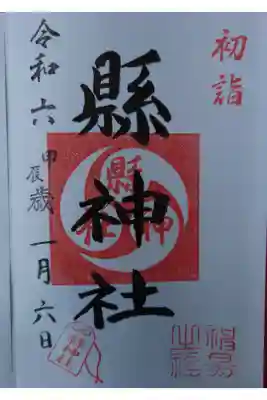 初詣
縣神社
縣神社
令和六甲辰歳一月六日